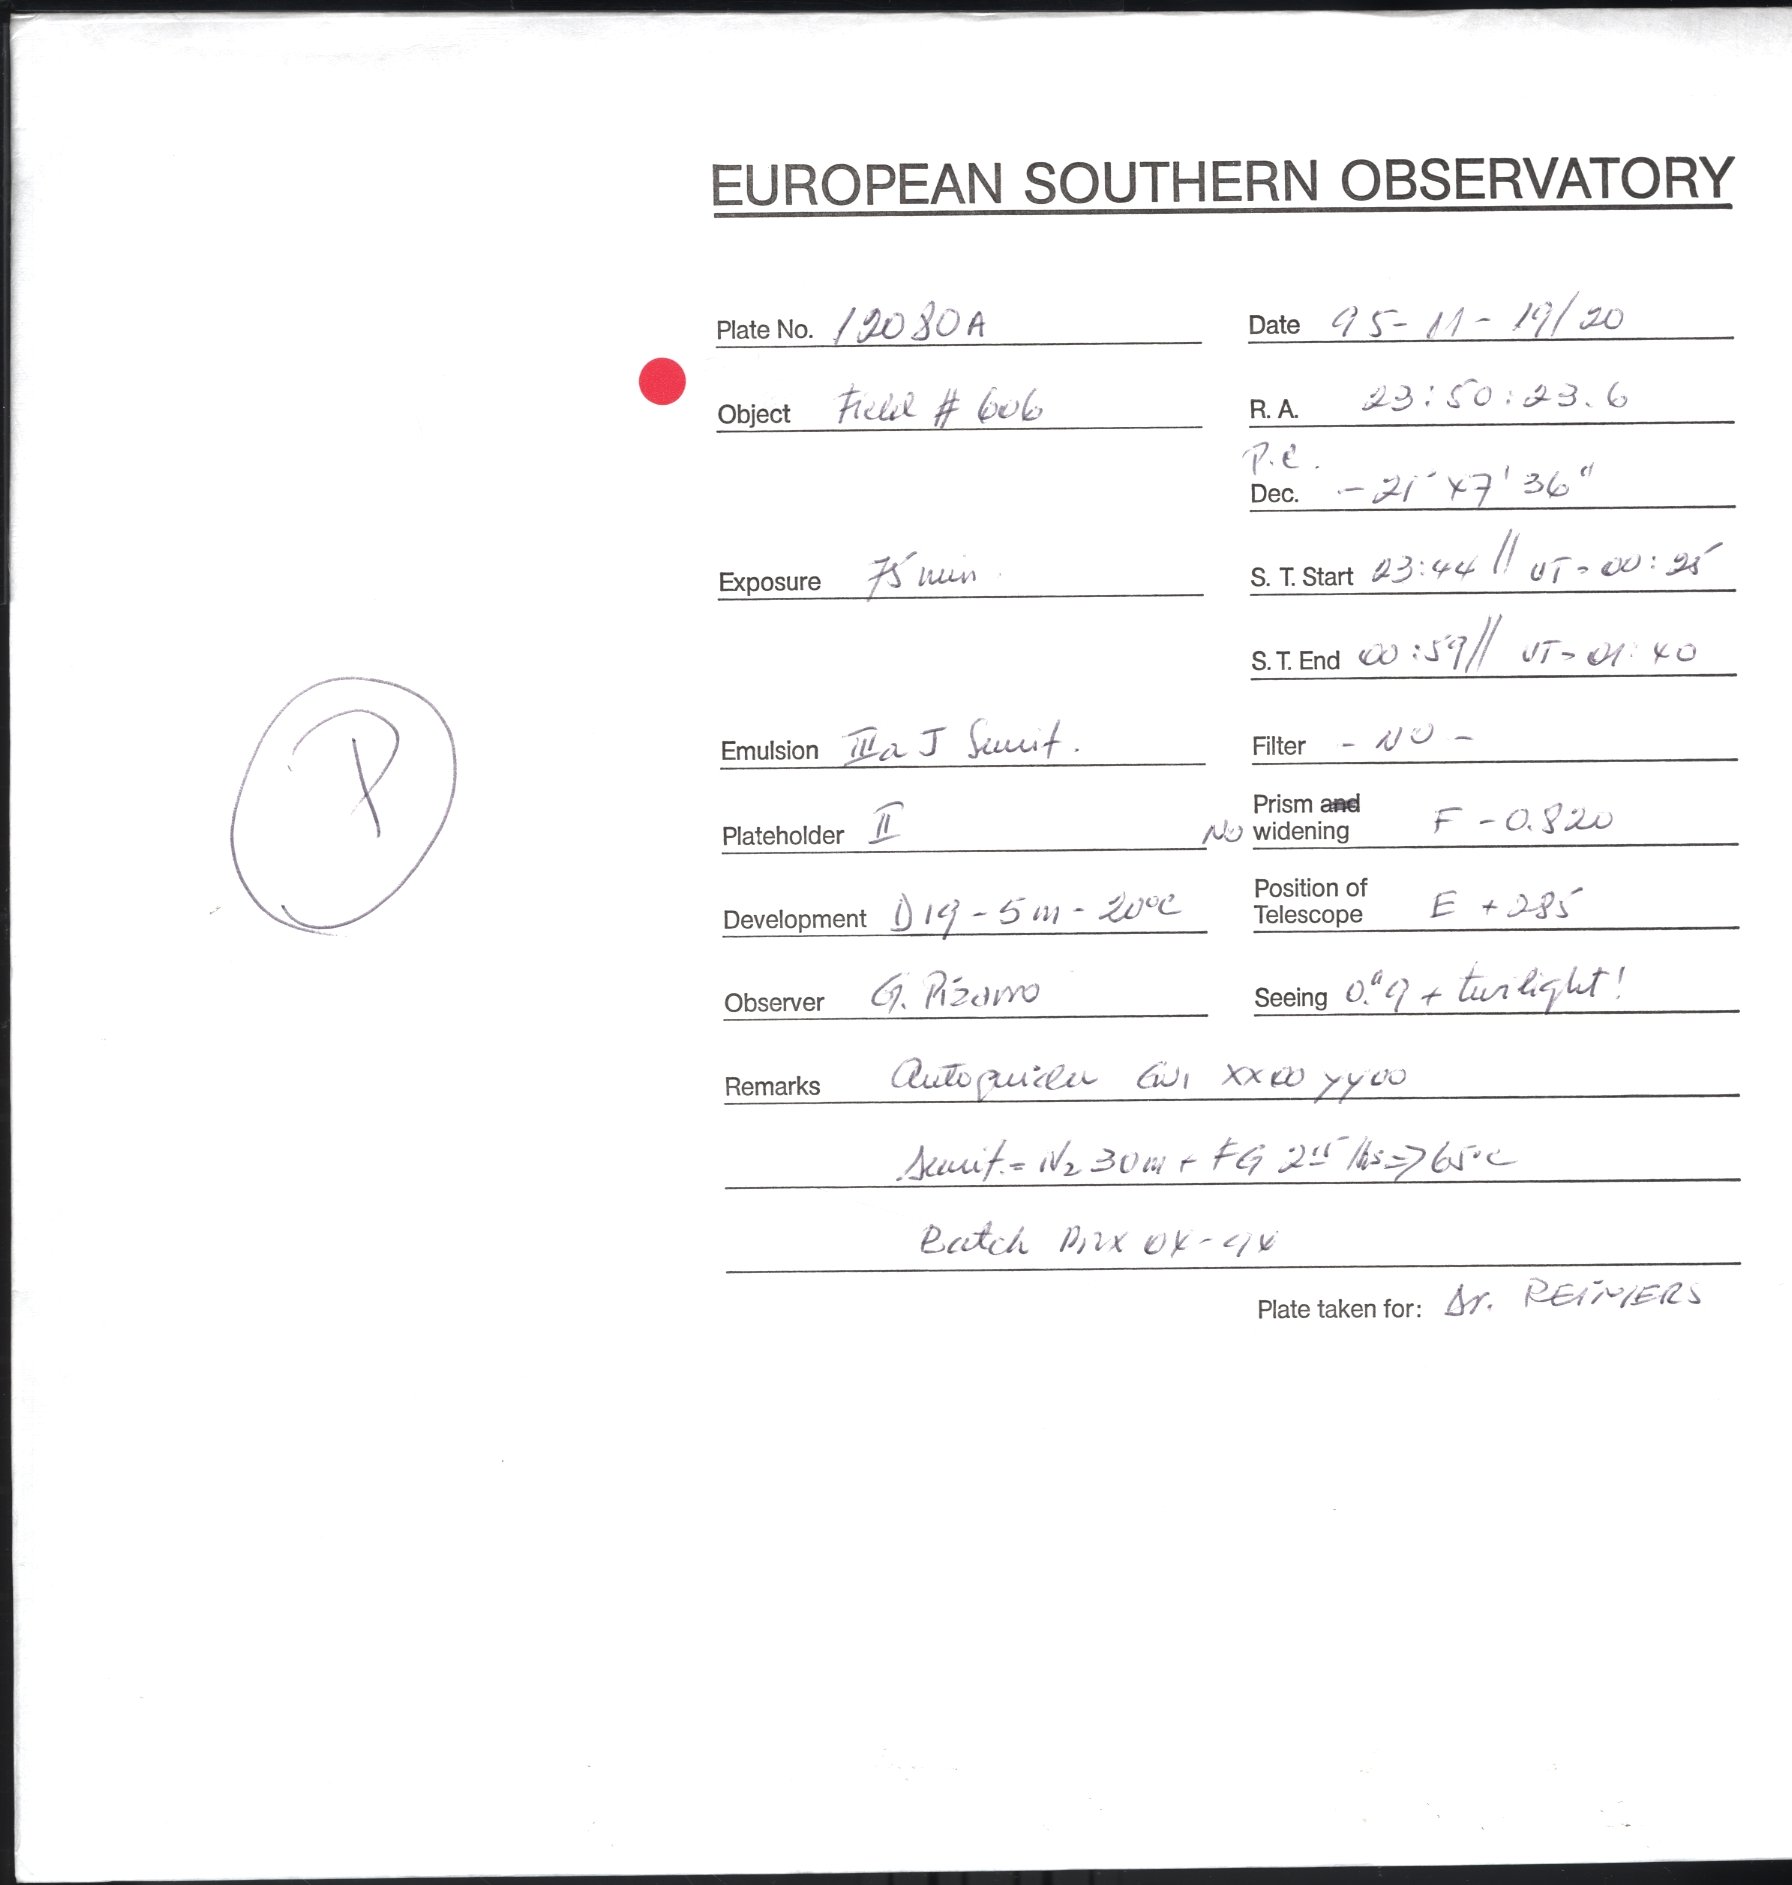 EUROPEAN SOUTHERN OBSERVATORY
Plate No. 12080A Date 95-11-19/20
Object Field # 606 R. A. 23:50:23.6
P.E.
Dec. -21° 47' 36"
Exposure 75 min. S. T. Start 23:44 // UT= 00:25
S. T. End 00:59 // UT= 01:40
Emulsion IIIa J Sensit. Filter - NO -
Prism and
Plateholder II No widening F - 0.820
Position of
Development D19 - 5m - 20°C Telescope E + 285
Observer G. Pizarro Seeing 0."9 + twilight!
Remarks Autoguider GW1 XX00 YY00
Sensit. = N2 30m + FG 2 hs => 65°C
Batch
Plate taken for: Dr. REIMERS
P